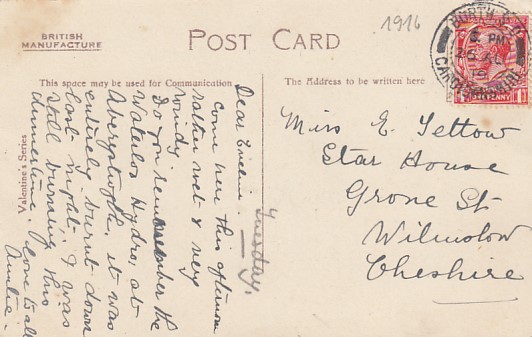 1916
BRITISH
MANUFACTURE
POST CARD
This space may be used for Communication
The Address to be written here
Valentine's Series
Tuesday.
Dear Ernie.
come here this afternoon
rather wet & very
windy
Do you remember the
Waterloo Hydro, at
Aberystwyth, it was
entirely burnt down
last night, & was
still burning this
dinnertime. Love to all
Auntie.
Miss E. Tettow
Star House
Grove St
Wilmslow
Cheshire
BORTH
5. PM
CARDIGANSHIRE